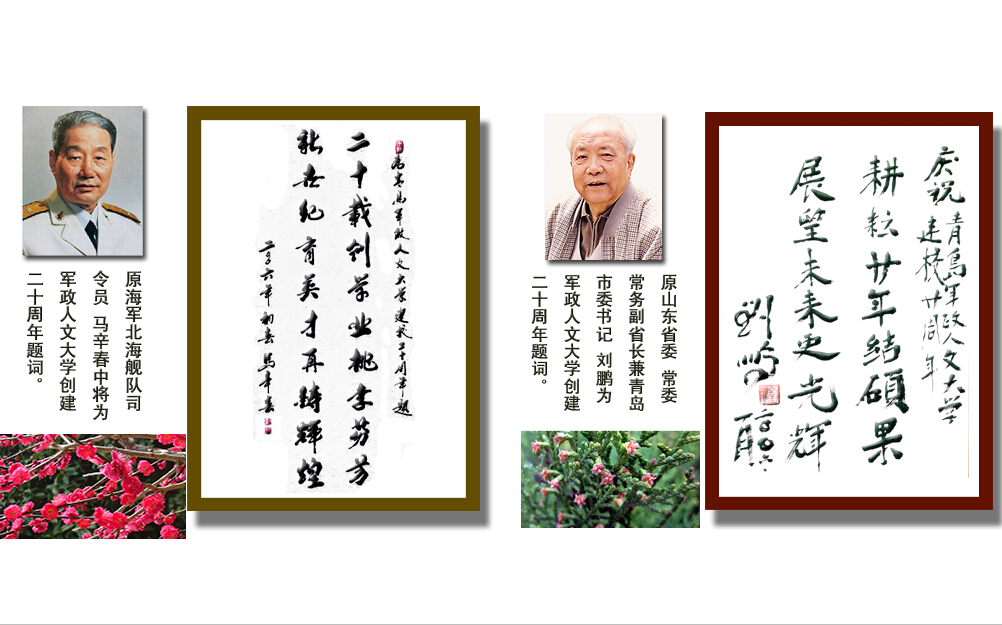 原海军北海舰队司
令员 马辛春中将为
军政人文大学创建
二十周年题词。
为青岛军政人文大学建校二十周年题
二十载创学业桃李芬芳
新世纪育英才再铸辉煌
二〇〇六年初春 马辛春
原山东省委 常委
常务副省长兼青岛
市委书记 刘鹏为
军政人文大学创建
二十周年题词。
庆祝青岛军政人文大学
建校廿周年
耕耘廿年结碩果
展望未来更光辉
刘鹏